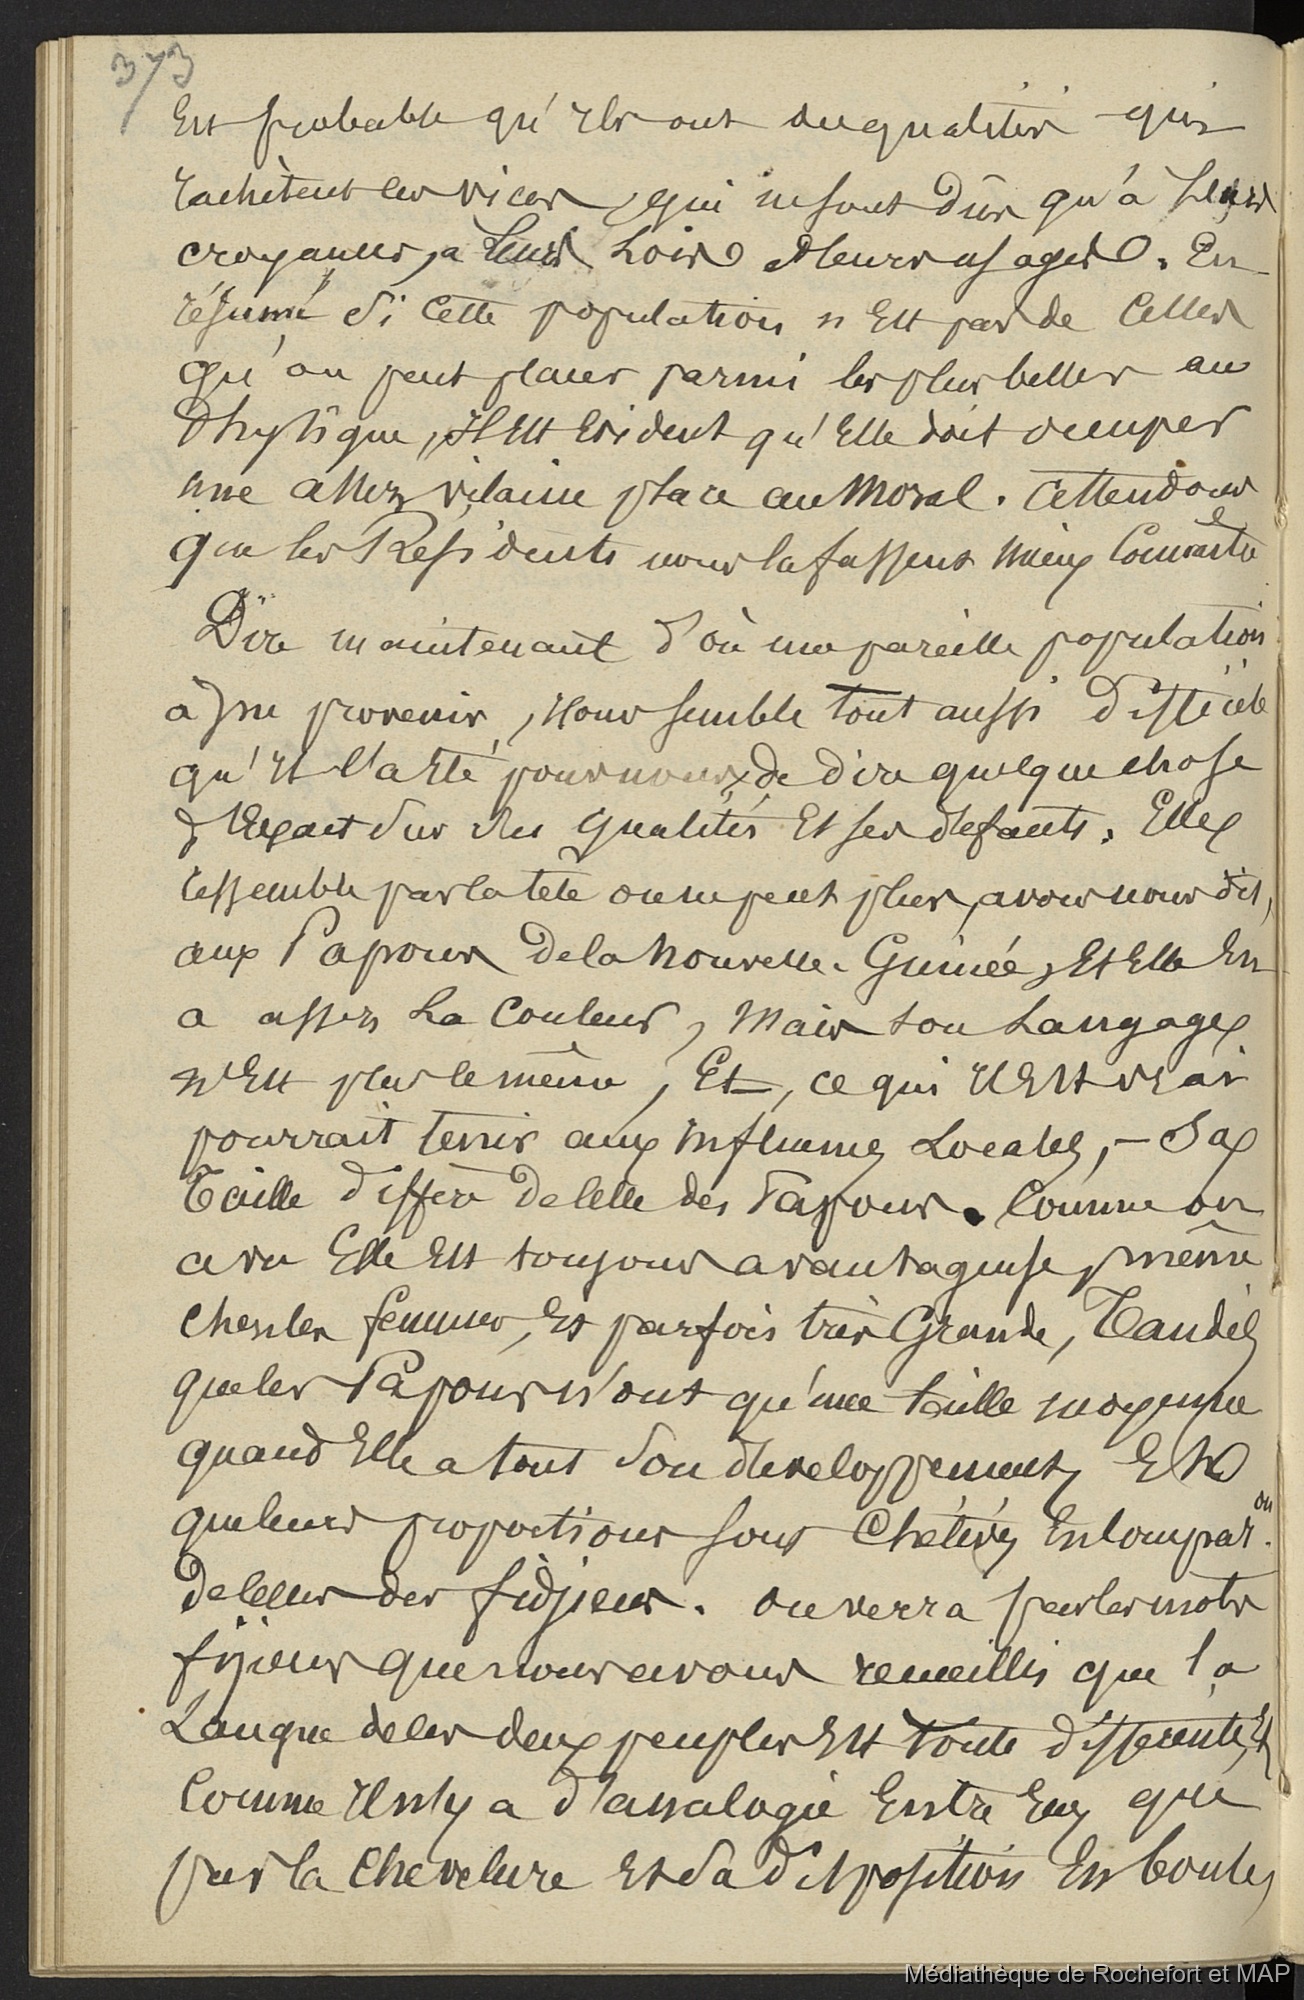 373
Est probable qu'ils ont des qualités qui
rachètent les vices, qui ne sont dûs qu'à leurs
croyances, à leurs Lois et leurs usages. En
résumé si cette population n'Est pas de Celles
qu'on peut placer parmi les plus belles au
Physique, Il Est Evident qu'Elle doit occuper
une assez vilaine place au Moral. Attendons
que les Résidents nous la fassent mieux Connaître
Dire maintenant d'où une pareille population
a pu provenir, Nous semble tout aussi Difficile
qu'il l'a Eté pour nous de dire quelque chose
d'Exact sur ses qualités Et ses défauts. Elle
ressemble par la tête on ne peut plus, avons nous dit,
aux Papous de la Nouvelle-Guinée, Et Elle En
a assez La Couleur, Mais son Langage
n'Est plus le même, Et, ce qui Il Est vrai
pourrait tenir aux Influences Locales, - Sa
Taille diffère de Celle des Papous. Comme on
a vu Elle Est toujours avantageuse, même
Chez les femmes, Et parfois très Grande, Tandis
que les Papous n'ont qu'une taille moyenne
quand Elle a tout son développement, Et
que leurs proportions sont Chétives En Compar.on
de Celles des fidjiens. On verra par les mots
fijiens que nous avons recueillis que la
Langue de ces deux peuples Est toute différente, Et
Comme Il n'y a d'analogie Entre Eux que
par la Chevelure Et sa disposition En boule,
Médiathèque de Rochefort et MAP